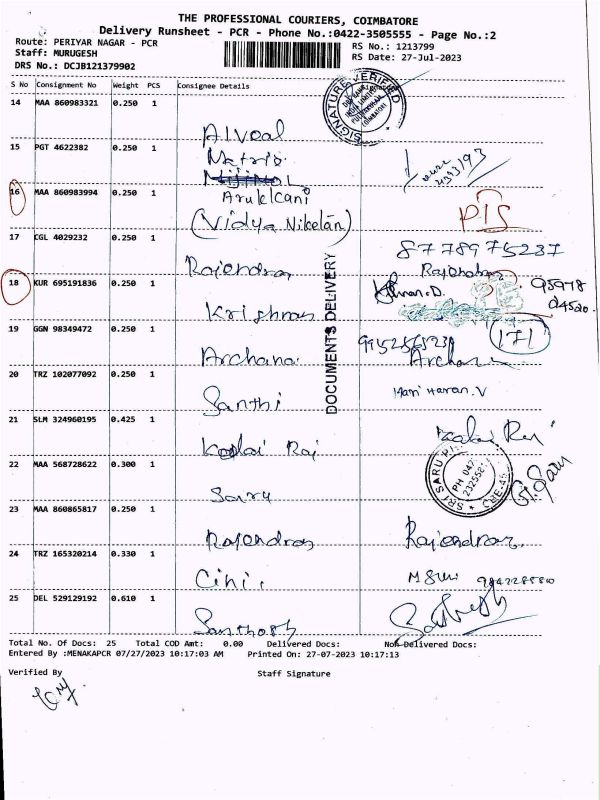 THE PROFESSIONAL COURIERS, COIMBATORE
Delivery Runsheet - PCR - Phone No.:0422-3505555 - Page No.:2
Route: PERIYAR NAGAR - PCR
Staff: MURUGESH
DRS No.: DCJB121379902
RS No.: 1213799
RS Date: 27-Jul-2023
S No Consignment No Weight PCS Consignee Details
SIGNATURE VERIFIED
14 MAA 860983321 0.250 1
Alvoal
15 PGT 4622382 0.250 1
Matrix
16 MAA 860983994 0.250 1
Arukkani
(Vidya Nikelan)
P/S
17 CGL 4029232 0.250 1
8778975237
Rajendran
18 KUR 695191836 0.250 1
Krishnan
95978
04520
19 GGN 98349472 0.250 1
171
Archana
20 TRZ 102077092 0.250 1
Santhi
Hari Haran.V
21 SLM 324960195 0.425 1
Kalai Raj
22 MAA 568728622 0.300 1
Saru
SRI SARU
23 MAA 860865817 0.250 1
Rajendran Rajendran
24 TRZ 165320214 0.330 1
Cini
25 DEL 529129192 0.610 1
Santhosh
DOCUMENTS DELIVERY
Total No. Of Docs: 25 Total COD Amt: 0.00 Delivered Docs: Non-Delivered Docs:
Entered By :MENAKAPCR 07/27/2023 10:17:03 AM Printed On: 27-07-2023 10:17:13
Verified By Staff Signature